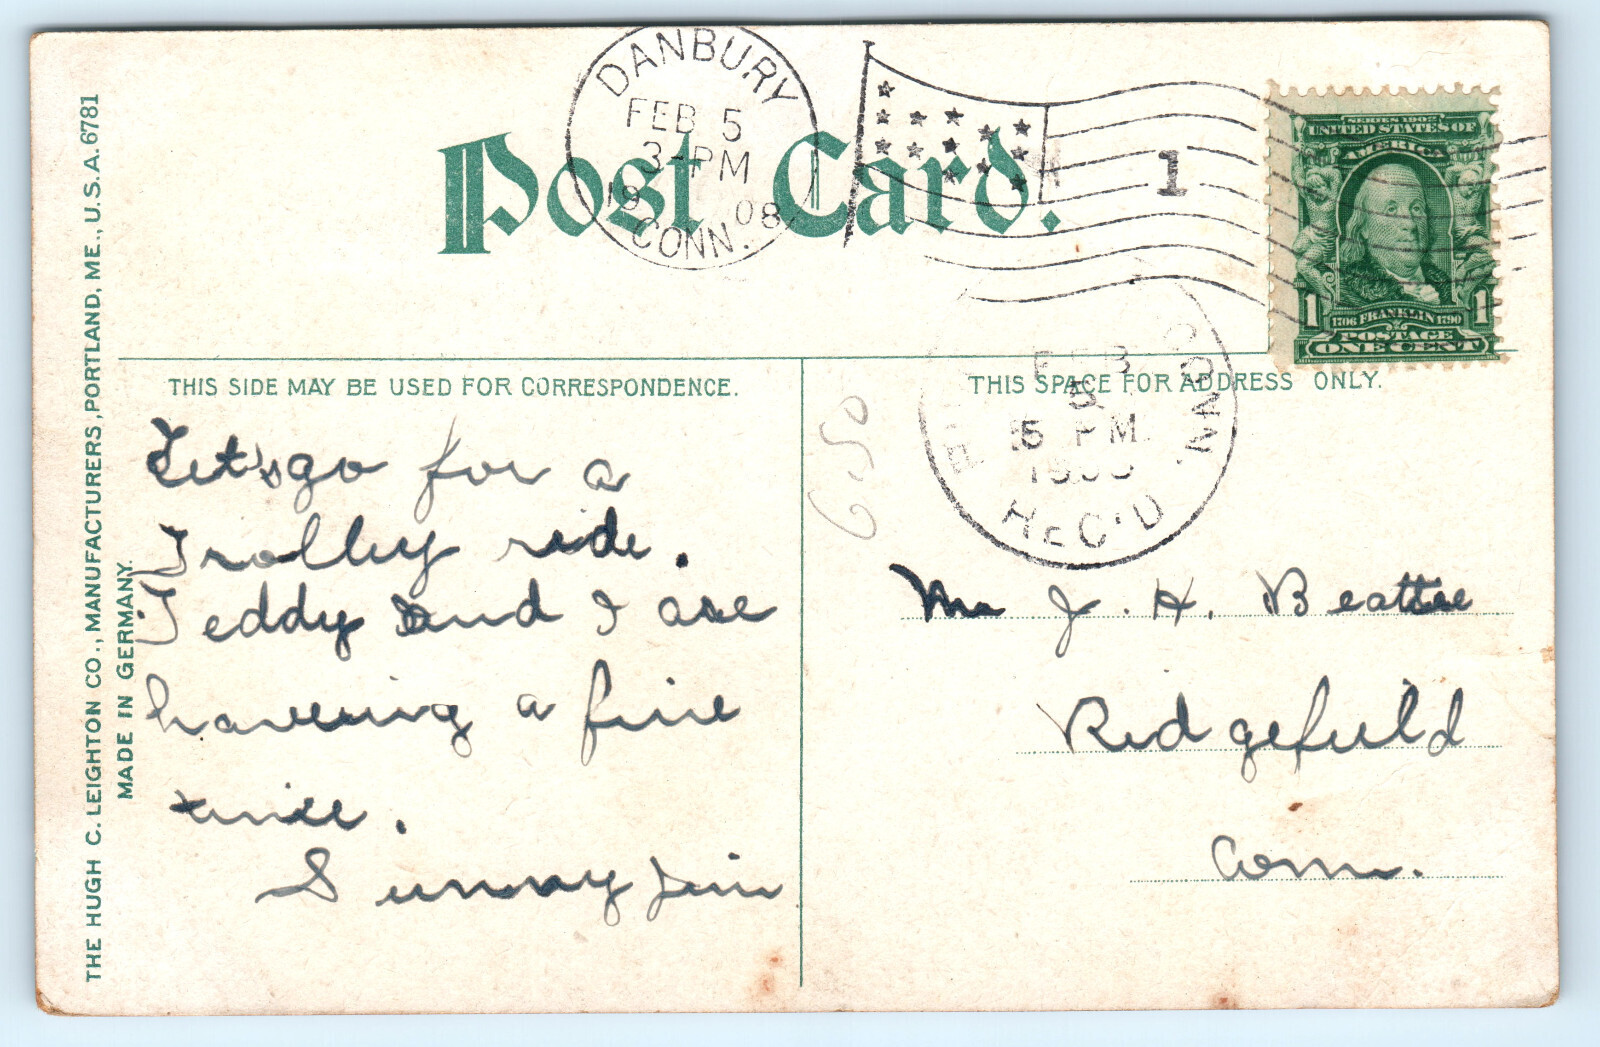 DANBURY
FEB 5
3-PM
19 08
CONN.
Post Card.
1
SERIES 1902
UNITED STATES OF
AMERICA
1 1
1706 FRANKLIN 1790
POSTAGE
ONE CENT
THE HUGH C. LEIGHTON CO., MANUFACTURERS, PORTLAND, ME., U.S.A. 6781
MADE IN GERMANY.
THIS SIDE MAY BE USED FOR CORRESPONDENCE.
Let's go for a
Trolley ride.
Teddy and I are
having a fine
time.
Sunny Jim
650
THIS SPACE FOR ADDRESS ONLY.
FEB
5
5 PM
CONN.
REC'D
Mr J. H. Beattie
Ridgefield
Conn.